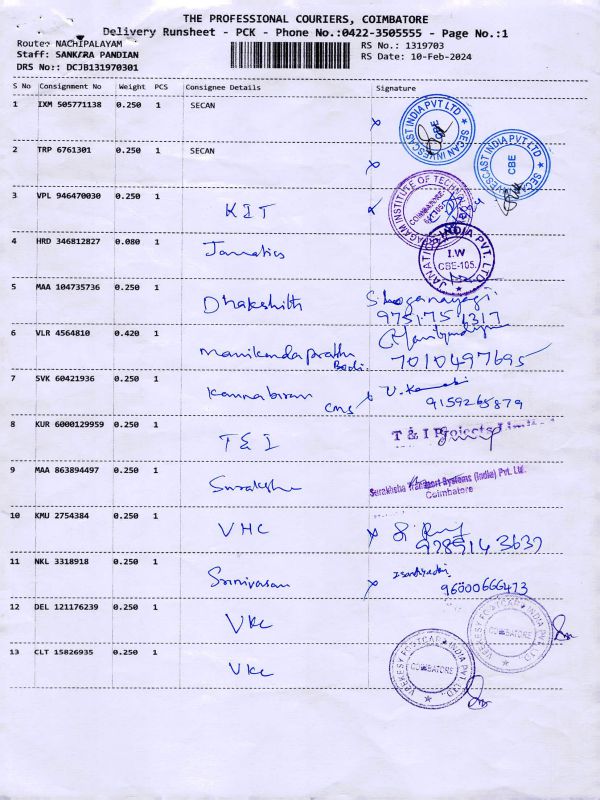 THE PROFESSIONAL COURIERS, COIMBATORE
Delivery Runsheet - PCK - Phone No.:0422-3505555 - Page No.:1
Route: NACHIPALAYAM
RS No.: 1319703
Staff: SANKARA PANDIAN
RS Date: 10-Feb-2024
DRS No:: DCJB131970301
S No Consignment No Weight PCS Consignee Details Signature
1 IXM 505771138 0.250 1 SECAN
SECAN INVESCAST INDIA PVT LTD CBE
2 TRP 6761301 0.250 1 SECAN
SECAN INVESCAST INDIA PVT LTD CBE
3 VPL 946470030 0.250 1 KIT
INSTITUTE OF TECHNOLOGY COIMBATORE
4 HRD 346812827 0.080 1 Janatics
JANATICS INDIA PVT. LTD. I.W CBE-105.
5 MAA 104735736 0.250 1 Dhakshith
9751751317
6 VLR 4564810 0.420 1 Manikandaprabhu
7010497695
7 SVK 60421936 0.250 1 Kannabiran CMS
9159265879
8 KUR 6000129959 0.250 1 T & I T & I Projects Limited
9 MAA 863894497 0.250 1 Suraksha
Surakhsha Transport Systems (India) Pvt. Ltd.
Coimbatore
10 KMU 2754384 0.250 1 VHC
9789143637
11 NKL 3318918 0.250 1 Srinivasan
9600066473
12 DEL 121176239 0.250 1 VKC
VEEKESY POSTCARD INDIA PVT. LTD. COIMBATORE
13 CLT 15826935 0.250 1 VKC
VEEKESY POSTCARD INDIA PVT. LTD. COIMBATORE